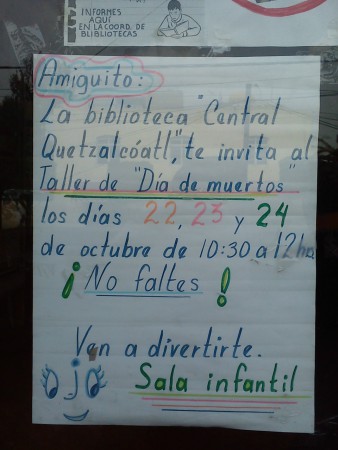 INFORMES
AQUÍ
EN LA COORD. DE
BLIBLIOTECAS
Amiguito:
La biblioteca "Central
Quetzalcóatl," te invita al
Taller de "Día de muertos"
los días 22, 23 y 24
de octubre de 10:30 a 12hrs
¡No faltes!
Ven a divertirte.
Sala infantil